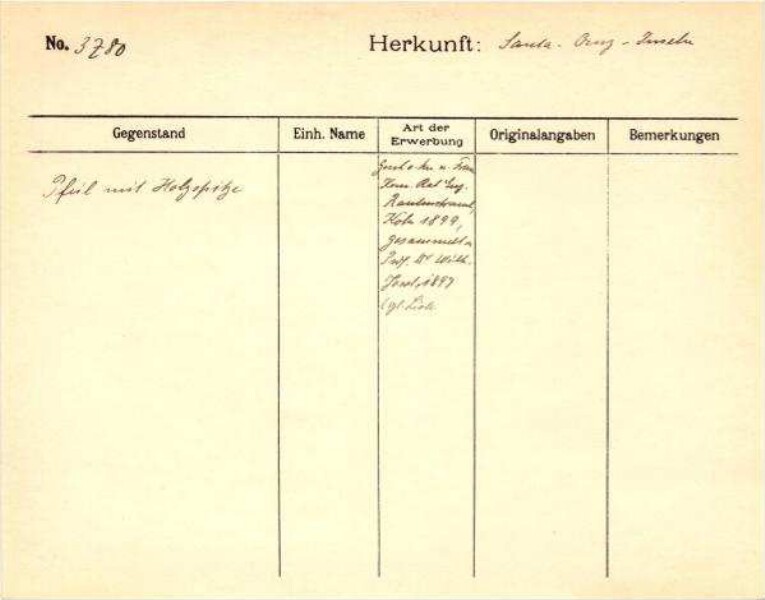 No. 3780
Herkunft: Santa-Cruz-Inseln
Gegenstand
Einh. Name
Art der Erwerbung
Originalangaben
Bemerkungen
Pfeil mit Holzspitze
Gesch. v. Hrn u. Frau
Kom. Rat Eug.
Rautenstrauch,
Köln 1899,
gesammelt v.
Prof. Dr Wilh.
Joest, 1897